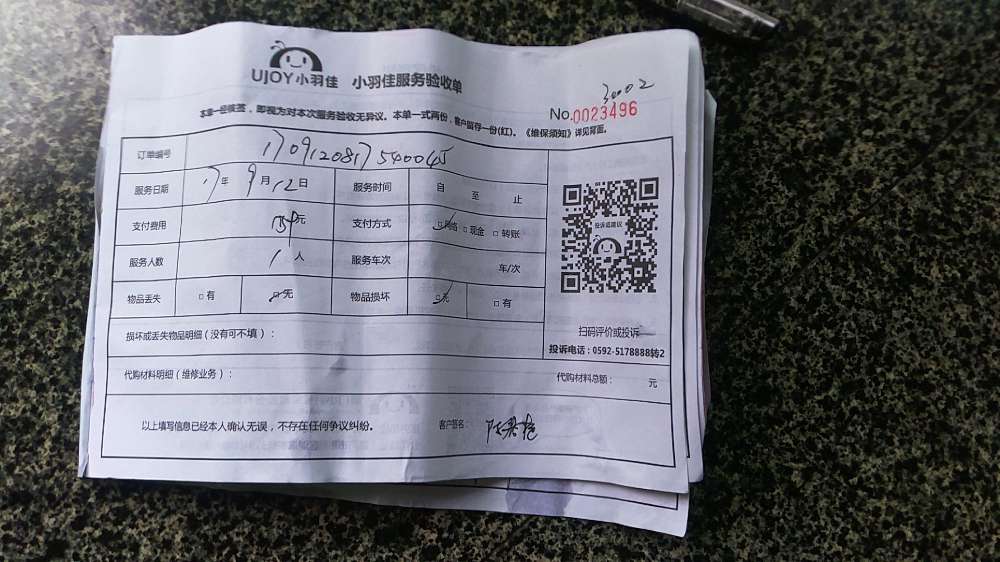 UJOY小羽佳 小羽佳服务验收单
30002
No.0023496
本单一经核签，即视为对本次服务验收无异议。本单一式两份，客户留存一份(红)。《维保须知》详见背面。
订单编号 170912081754004
服务日期 17年 9月12日 服务时间 自 至 止
支付费用 元 支付方式 □网络 □现金 □转账
服务人数 1人 服务车次 车/次
物品丢失 □有 □无 物品损坏 □无 □有
投诉或建议
损坏或丢失物品明细（没有可不填）：
扫码评价或投诉
投诉电话：0592-5178888转2
代购材料明细（维修业务）： 代购材料总额： 元
以上填写信息已经本人确认无误，不存在任何争议纠纷。 客户签名：